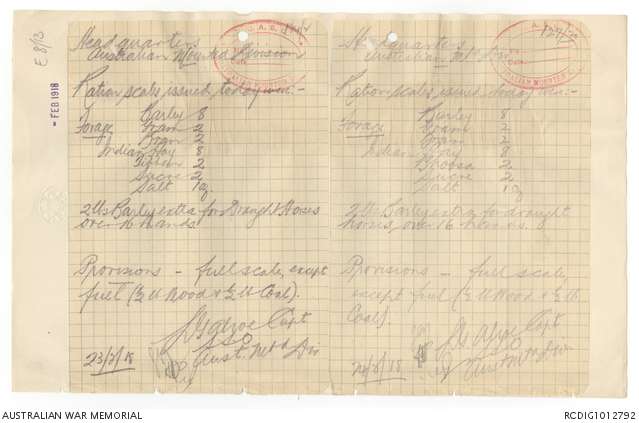 E 8/13
- FEB 1918
Headquarters
Australian Mounted Division
Ration scales issued today were:-
Forage Barley 8
Gram 2
Bran 2
Indian Hay 8
Tibben 2
Sucre 2
Salt 1 oz
2 lbs Barley extra for Draught Horses
over 16 hands
Provisions - full scale, except
fuel (½ lb Wood & ½ lb Coal).
Capt
SSO
Aust. Mtd Div
23/2/18
Headquarters
Australian Mtd Div
127/
Ration scales issued today were:-
Forage Barley 8
Gram 2
Bran 2
Indian 8
Bhoosa 2
Sucre 2
Salt 1 oz
2 lbs Barley extra for draught
horses, over 16 hands.
Provisions - full scale,
except fuel (½ lb Wood & ½ lb.
Coal).
Capt
SSO
Aust Mtd Div
/2/18
AUSTRALIAN WAR MEMORIAL
RCDIG1012792